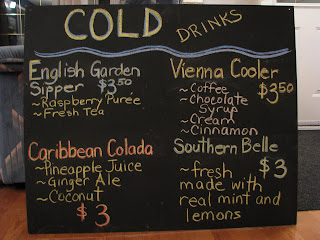 COLD DRINKS
English Garden
Sipper $3.50
~Raspberry Purée
~Fresh Tea
Vienna Cooler
~Coffee $3.50
~Chocolate
Syrup
~Cream
~Cinnamon
Caribbean Colada
~Pineapple Juice
~Ginger Ale
~Coconut
$3
Southern Belle
~fresh $3
made with
real mint and
lemons